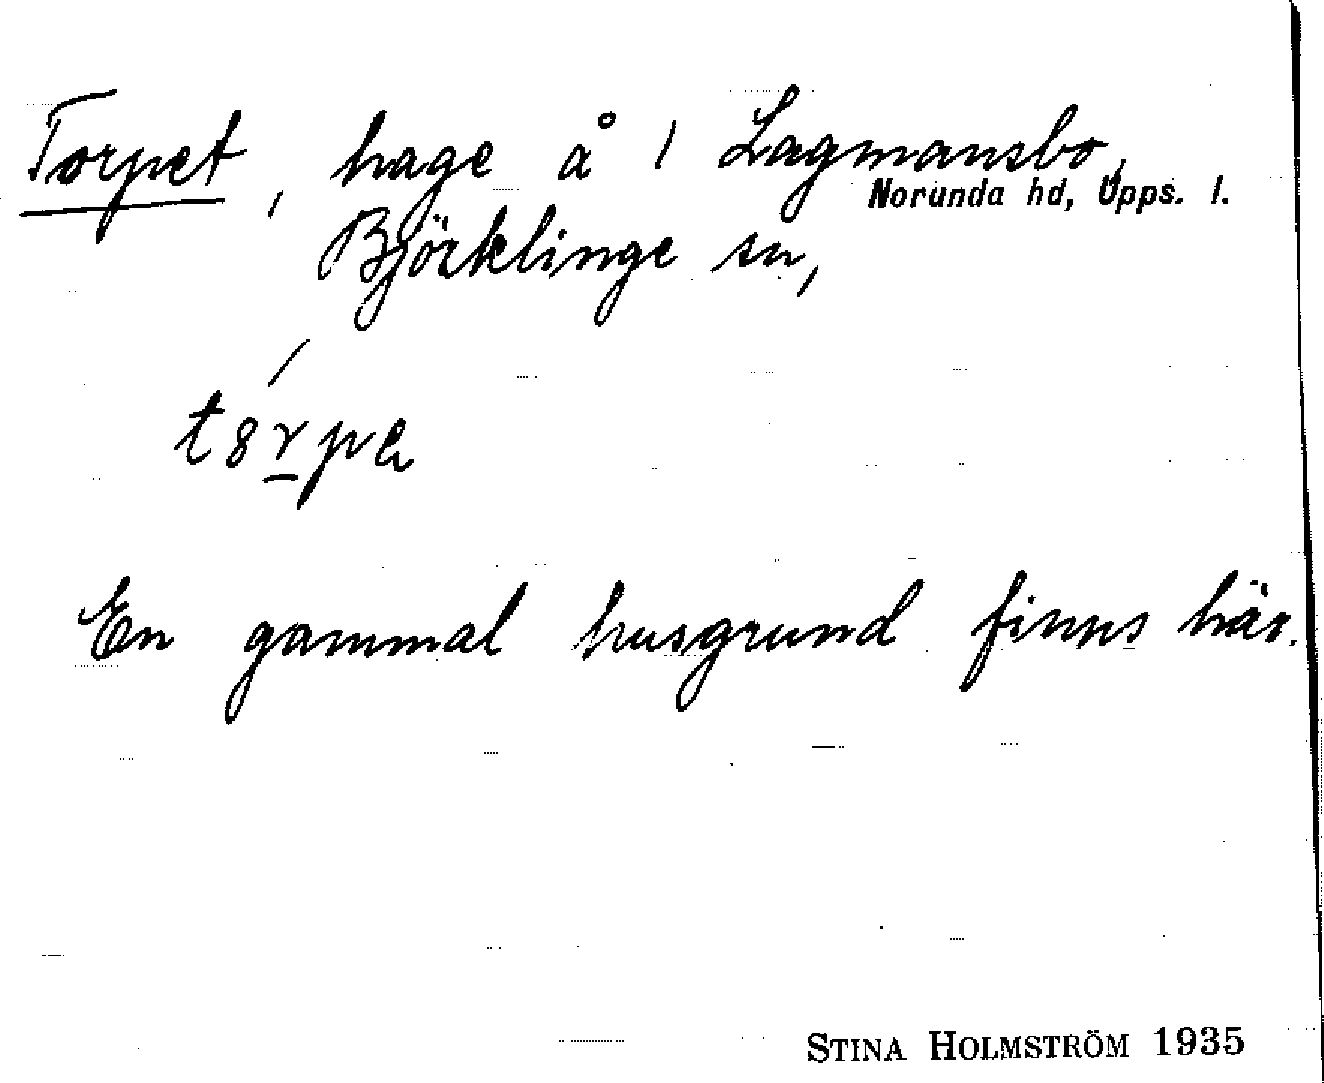 Torpet, hage å 1 Lagmansbo,
Norunda hd, Upps. l.
Björklinge sn,
En gammal husgrund finns här.
STINA HOLMSTRÖM 1935